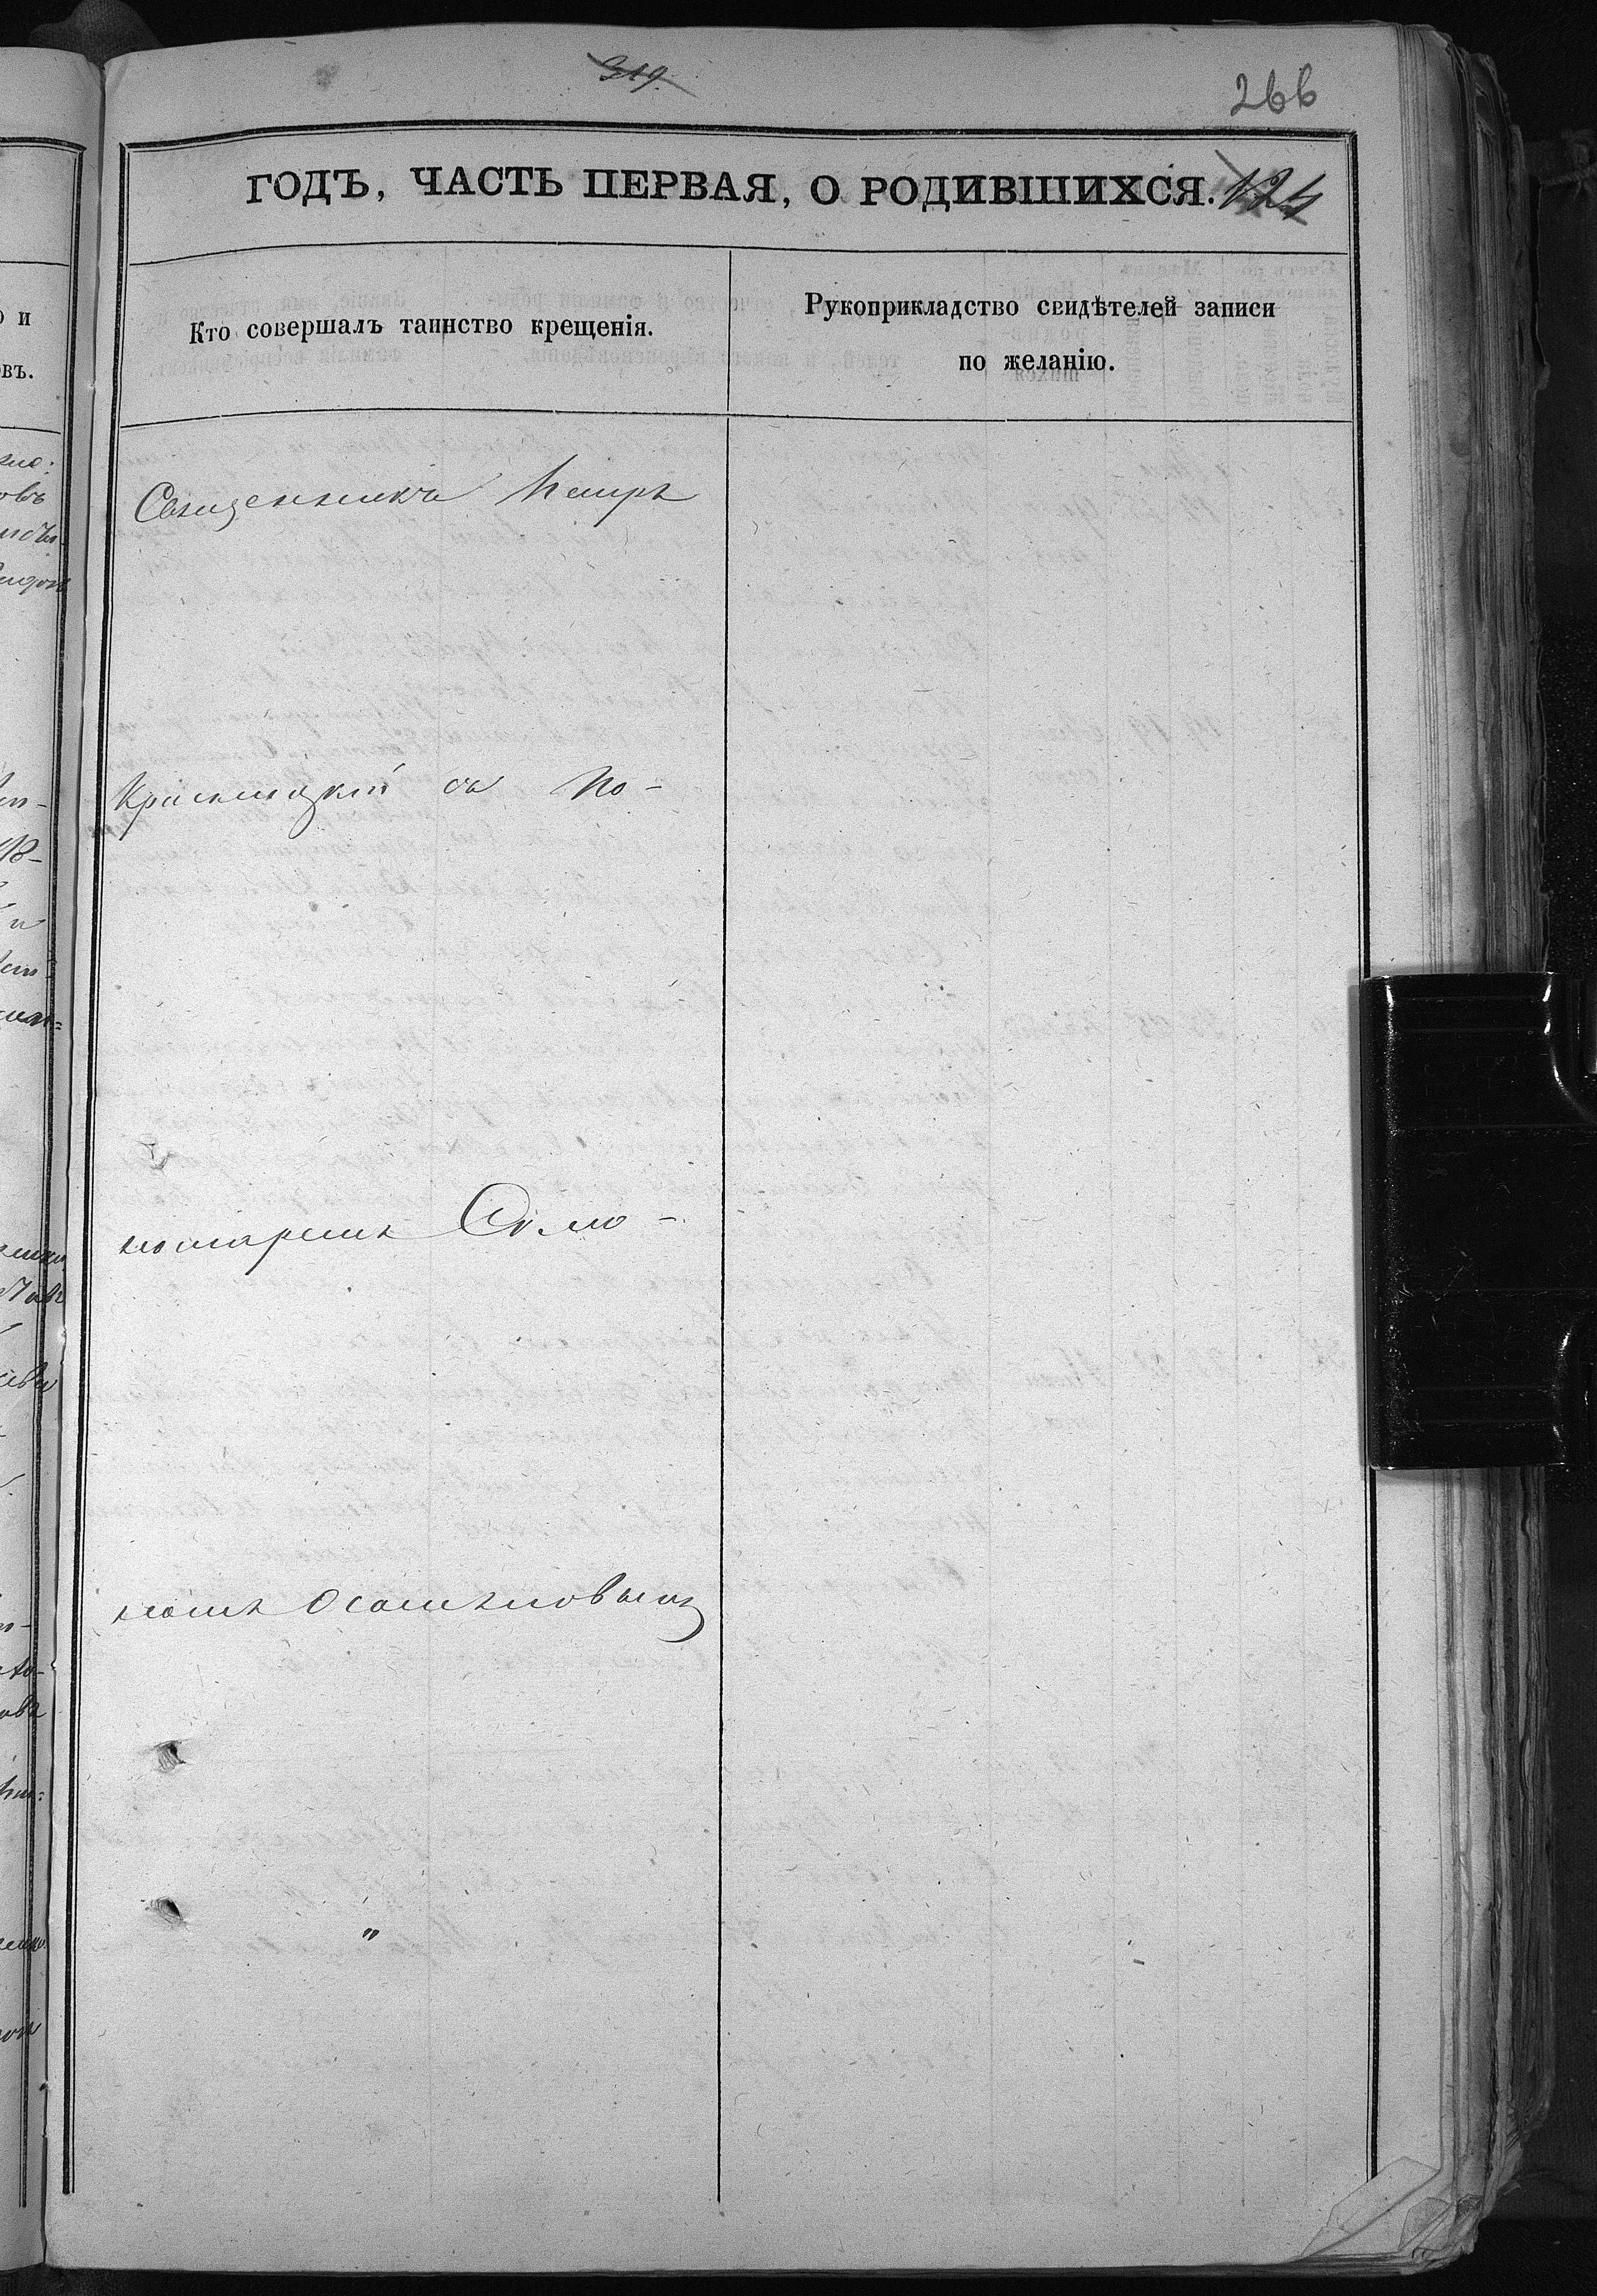 319.
266
ГОДЪ, ЧАСТЬ ПЕРВАЯ, О РОДИВШИХСЯ. 124
Кто совершалъ таинство крещенія.
Рукоприкладство свидѣтелей записи
по желанію.
Священникъ Петръ
Красницкій съ по-
номаремъ Симо-
номъ
"